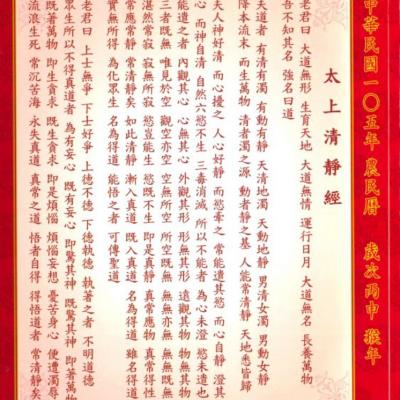 中華民國一〇五年 農民曆 歲次丙申 猴年
太上清靜經
老君曰 大道無形 生育天地 大道無情 運行日月 大道無名 長養萬物
吾不知其名 強名曰道
夫道者 有清有濁 有動有靜 天清地濁 天動地靜 男清女濁 男動女靜
降本流末 而生萬物 清者濁之源 動者靜之基 人能常清靜 天地悉皆歸
夫人神好清 而心擾之 人心好靜 而慾牽之 常能遣其慾 而心自靜 澄其
心 而神自清 自然六慾不生 三毒消滅 所以不能者 為心未澄 慾未遣也
能遣之者 內觀其心 心無其心 外觀其形 形無其形 遠觀其物 物無其物
三者既無 唯見於空 觀空亦空 空無所空 所空既無 無無亦無 無無既無
湛然常寂 寂無所寂 慾豈能生 慾既不生 即是真靜 真常應物 真常得性
常應常靜 常清靜矣 如此清靜 漸入真道 既入真道 名為得道 雖名得道
實無所得 為化眾生 名為得道 能悟之者 可傳聖道
老君曰 上士無爭 下士好爭 上德不德 下德執德 執著之者 不明道德
眾生所以不得真道者 為有妄心 既有妄心 即驚其神 既驚其神 即著萬物
既著萬物 即生貪求 既生貪求 即是煩惱 煩惱妄想 憂苦身心 便遭濁辱
流浪生死 常沉苦海 永失真道 真常之道 悟者自得 得悟道者 常清靜矣